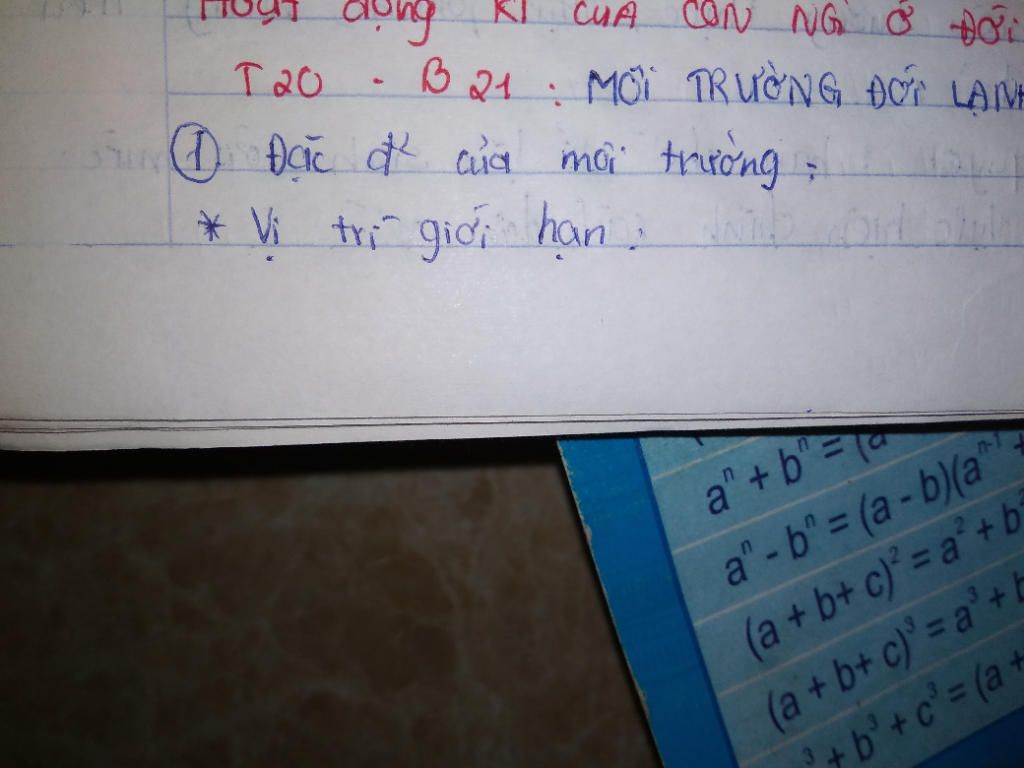 Hoạt động KT CỦA CON NG Ở ĐỚI
T20 - B21: MÔI TRƯỜNG ĐỚI LẠNH
① Đặc đ² của môi trường:
* Vị trí giới hạn:
aⁿ + bⁿ = (a
aⁿ - bⁿ = (a - b)(aⁿ⁻¹ +
(a + b + c)² = a² + b²
(a + b + c)³ = a³ + b
³ + b³ + c³ = (a +